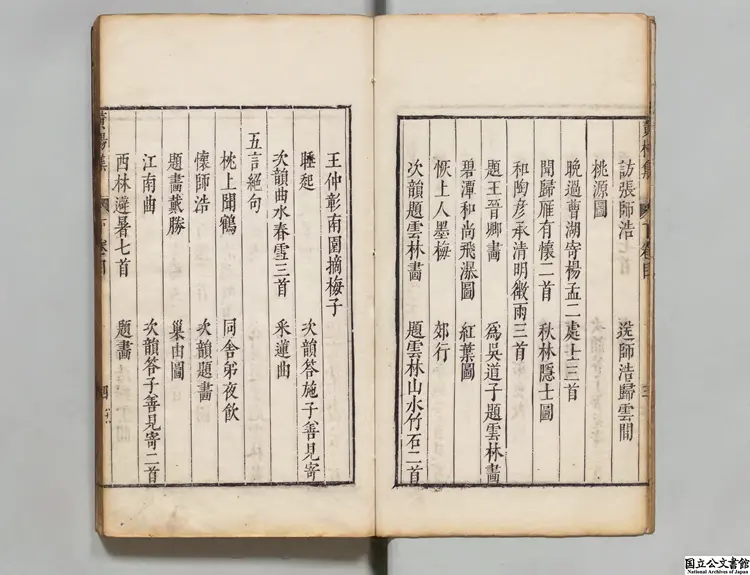 訪張師浩 送師浩歸雲間
桃源圖
晚過曹湖寄楊孟二處士三首
聞歸雁有懷二首 秋林隱士圖
和陶彦承清明微雨三首
題王晉卿畵 爲吳道子題雲林畵
碧潭和尚飛瀑圖 紅葉圖
恢上人墨梅 郊行
次韻題雲林畵 題雲林山水竹石二首
王仲彰南園摘梅子
睡起 次韻答施子善見寄
次韻曲水春雪三首 采蓮曲
五言絕句
枕上聞鶴 同舍弟夜飲
懷師浩 次韻題畵
題畵戴勝 巢由圖
江南曲 次韻答子善見寄二首
西林避暑七首 題畵
黃楊集 下卷目 四
国立公文書館
National Archives of Japan